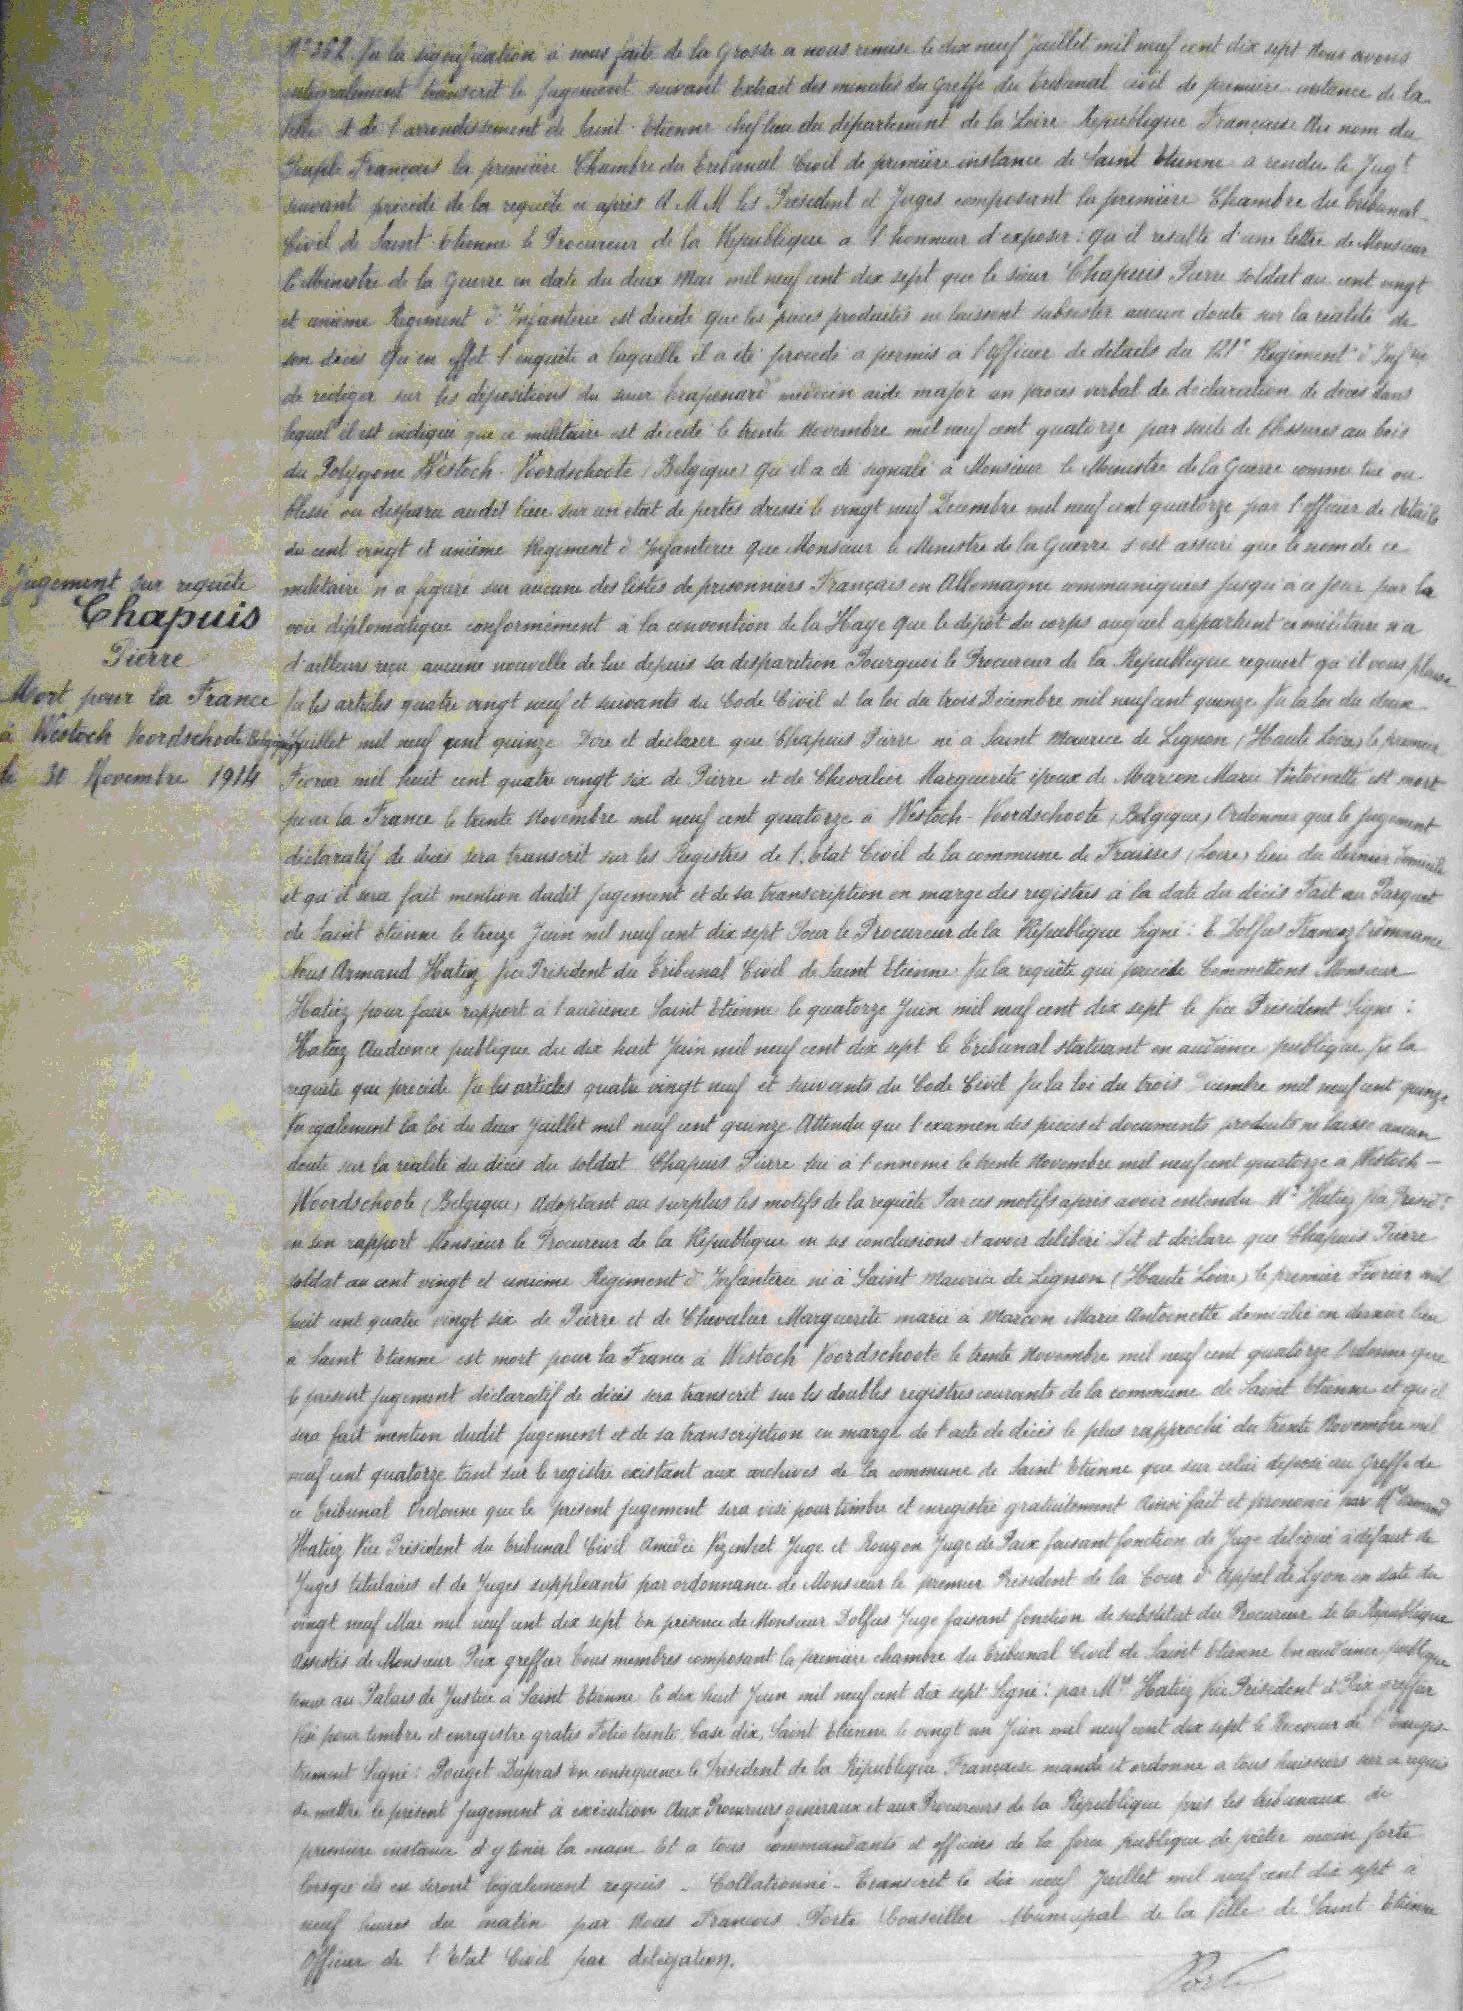 Jugement sur requête
Chapuis
Pierre
Mort pour la France
à Westoch Voordschoote Belgique
le 30 Novembre 1914
N° 362. Vu la signification à nous faite de la Grosse a nous remise le dix neuf Juillet mil neuf cent dix sept Nous avons
intégralement transcrit le Jugement suivant Extrait des minutes du Greffe du Tribunal civil de première instance de la
ville et de l'arrondissement de Saint-Etienne chef lieu du département de la Loire République Française Au nom du
Peuple Français la première Chambre du Tribunal Civil de première instance de Saint Etienne a rendu le Jugt
suivant précédé de la requête ci après A M M les Président et Juges composant la première Chambre du Tribunal
Civil de Saint-Etienne le Procureur de la République a l'honneur d'exposer : qu'il résulte d'une lettre de Monsieur
le Ministre de la Guerre en date du deux Mai mil neuf cent dix sept que le sieur Chapuis Pierre soldat au cent vingt
et unième Régiment d'Infanterie est décédé que les pièces produites ne laissent subsister aucun doute sur la réalité de
son décès Qu'en effet l'enquête a laquelle il a été procédé a permis a l'officier de détails du 121e Régiment d'Infrie
de rédiger sur les dépositions du sieur Crapenard médecin aide major un procès verbal de déclaration de décès dans
lequel il est indiqué que ce militaire est décédé le trente Novembre mil neuf cent quatorze par suite de blessures au bois
du Polygone Westoch-Voordschoote (Belgique) qu'il a été signalé à Monsieur le Ministre de la Guerre comme tué ou
blessé ou disparu audit lieu sur un état de pertes dressé le vingt neuf Décembre mil neuf cent quatorze par l'officier de détails
du cent vingt et unième Régiment d'Infanterie que Monsieur le Ministre de la Guerre s'est assuré que le nom de ce
militaire n'a figuré sur aucune des listes de prisonniers Français en Allemagne communiquées jusqu'a ce jour par la
voie diplomatique conformément à la convention de la Haye que le dépôt du corps auquel appartient ce militaire n'a
d'ailleurs reçu aucune nouvelle de lui depuis sa disparition Pourquoi le Procureur de la République requiert qu'il vous plaise
Vu les articles quatre vingt neuf et suivants du Code Civil et la loi du trois Décembre mil neuf cent quinze Vu la loi du deux
Juillet mil neuf cent quinze Dire et déclarer que Chapuis Pierre né a Saint Maurice de Lignon (Haute Loire) le premier
Février mil huit cent quatre vingt six de Pierre et de Chevalier Marguerite époux de Marcon Marie Antoinette est mort
pour la France le trente Novembre mil neuf cent quatorze à Westoch-Voordschoote (Belgique) Ordonner que le jugement
déclaratif de décès sera transcrit sur les Registres de l'Etat Civil de la commune de Fraisses (Loire) lieu du dernier domicile
et qu'il sera fait mention dudit jugement et de sa transcription en marge des registres à la date du décès Fait au Parquet
de Saint Etienne le treize Juin mil neuf cent dix sept Pour le Procureur de la République Signé : E. Dolfus Ordonnance
Nous Armand Hatiez Vice Président du Tribunal Civil de Saint Etienne Vu la requête qui précède Commettons Monsieur
Hatiez pour faire rapport à l'audience Saint Etienne le quatorze Juin mil neuf cent dix sept le Vice Président Signé :
Hatiez Audience publique du dix huit Juin mil neuf cent dix sept le Tribunal statuant en audience publique Vu la
requête qui précède Vu les articles quatre vingt neuf et suivants du Code Civil Vu la loi du trois Décembre mil neuf cent quinze
Vu également la loi du deux Juillet mil neuf cent quinze Attendu que l'examen des pièces et documents produits ne laisse aucun
doute sur la réalité du décès du soldat Chapuis Pierre tué à l'ennemi le trente Novembre mil neuf cent quatorze à Westoch-
Woordschoote (Belgique) Adoptant au surplus les motifs de la requête Par ces motifs après avoir entendu Mr Hatiez Vice Présidt
en son rapport Monsieur le Procureur de la République en ses conclusions et avoir délibéré Dit et déclare que Chapuis Pierre
soldat au cent vingt et unième Régiment d'Infanterie né à Saint Maurice de Lignon (Haute Loire) le premier Février mil
huit cent quatre vingt six de Pierre et de Chevalier Marguerite marié à Marcon Marie Antoinette domicilié en dernier lieu
à Saint Etienne est mort pour la France à Westoch Voordschoote le trente Novembre mil neuf cent quatorze Ordonne que
le présent jugement déclaratif de décès sera transcrit sur les doubles registres courants de la commune de Saint Etienne et qu'il
sera fait mention dudit jugement et de sa transcription en marge de l'acte de décès le plus rapproché du trente Novembre mil
neuf cent quatorze tant sur le registre existant aux archives de la commune de Saint Etienne que sur celui déposé au Greffe de
ce Tribunal Ordonne que le présent jugement sera visé pour timbre et enregistré gratuitement Ainsi fait et prononcé par Mr Armand
Hatiez Vice Président du Tribunal Civil Amédée Vizentret Juge et Rougon Juge de Paix faisant fonction de Juge délégué à défaut de
Juges titulaires et de Juges suppléants par ordonnance de Monsieur le premier Président de la Cour d'Appel de Lyon en date du
vingt neuf Mai mil neuf cent dix sept En présence de Monsieur Dolfus Juge faisant fonction de substitut du Procureur de la République
Assistés de Monsieur Prix greffier Tous membres composant la première chambre du Tribunal Civil de Saint Etienne En audience publique
tenue au Palais de Justice à Saint Etienne le dix huit Juin mil neuf cent dix sept Signé : par Mrs Hatiez Vice Président & Prix greffier
Visé pour timbre et enregistré gratis Folio trente Case dix, Saint Etienne le vingt un Juin mil neuf cent dix sept le Receveur de l'enregis-
trement Signé : Pouget Duperas En conséquence le Président de la République Française mande et ordonne a tous huissiers sur ce requis
de mettre le présent jugement à exécution Aux Procureurs généraux et aux Procureurs de la République près les tribunaux de
première instance d'y tenir la main Et a tous commandants et officiers de la force publique de prêter main forte
lorsqu'ils en seront légalement requis - Collationné - Transcrit le dix neuf Juillet mil neuf cent dix sept à
neuf heures du matin par Nous François Porte Conseiller Municipal de la Ville de Saint Etienne
Officier de l'Etat Civil par délégation.
Porte